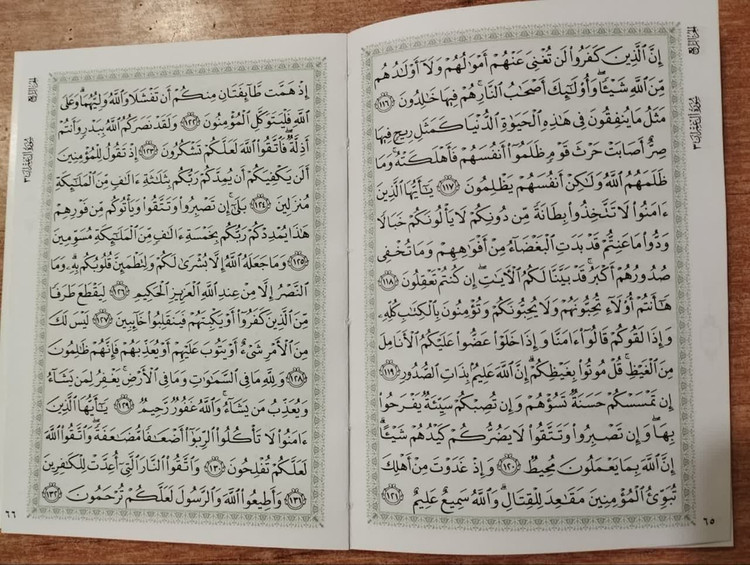 الجزء الرابع
سورة آل عمران ٣
إِنَّ ٱلَّذِينَ كَفَرُوا۟ لَن تُغْنِىَ عَنْهُمْ أَمْوَٰلُهُمْ وَلَآ أَوْلَـٰدُهُم
مِّنَ ٱللَّهِ شَيْـًٔا ۖ وَأُو۟لَـٰٓئِكَ أَصْحَـٰبُ ٱلنَّارِ ۚ هُمْ فِيهَا خَـٰلِدُونَ ١١٦
مَثَلُ مَا يُنفِقُونَ فِى هَـٰذِهِ ٱلْحَيَوٰةِ ٱلدُّنْيَا كَمَثَلِ رِيحٍ فِيهَا
صِرٌّ أَصَابَتْ حَرْثَ قَوْمٍ ظَلَمُوٓا۟ أَنفُسَهُمْ فَأَهْلَكَتْهُ ۚ وَمَا
ظَلَمَهُمُ ٱللَّهُ وَلَـٰكِنْ أَنفُسَهُمْ يَظْلِمُونَ ١١٧ يَـٰٓأَيُّهَا ٱلَّذِينَ
ءَامَنُوا۟ لَا تَتَّخِذُوا۟ بِطَانَةً مِّن دُونِكُمْ لَا يَأْلُونَكُمْ خَبَالًا
وَدُّوا۟ مَا عَنِتُّمْ قَدْ بَدَتِ ٱلْبَغْضَآءُ مِنْ أَفْوَٰهِهِمْ وَمَا تُخْفِى
صُدُورُهُمْ أَكْبَرُ ۚ قَدْ بَيَّنَّا لَكُمُ ٱلْـَٔايَـٰتِ ۖ إِن كُنتُمْ تَعْقِلُونَ ١١٨
هَـٰٓأَنتُمْ أُو۟لَآءِ تُحِبُّونَهُمْ وَلَا يُحِبُّونَكُمْ وَتُؤْمِنُونَ بِٱلْكِتَـٰبِ كُلِّهِۦ
وَإِذَا لَقُوكُمْ قَالُوٓا۟ ءَامَنَّا وَإِذَا خَلَوْا۟ عَضُّوا۟ عَلَيْكُمُ ٱلْأَنَامِلَ
مِنَ ٱلْغَيْظِ ۚ قُلْ مُوتُوا۟ بِغَيْظِكُمْ ۗ إِنَّ ٱللَّهَ عَلِيمٌۢ بِذَاتِ ٱلصُّدُورِ ١١٩
إِن تَمْسَسْكُمْ حَسَنَةٌ تَسُؤْهُمْ وَإِن تُصِبْكُمْ سَيِّئَةٌ يَفْرَحُوا۟
بِهَا ۖ وَإِن تَصْبِرُوا۟ وَتَتَّقُوا۟ لَا يَضُرُّكُمْ كَيْدُهُمْ شَيْـًٔا ۗ
إِنَّ ٱللَّهَ بِمَا يَعْمَلُونَ مُحِيطٌ ١٢٠ وَإِذْ غَدَوْتَ مِنْ أَهْلِكَ
تُبَوِّئُ ٱلْمُؤْمِنِينَ مَقَـٰعِدَ لِلْقِتَالِ ۗ وَٱللَّهُ سَمِيعٌ عَلِيمٌ ١٢١
٦٥
الجزء الرابع
سورة آل عمران ٣
إِذْ هَمَّت طَّآئِفَتَانِ مِنكُمْ أَن تَفْشَلَا وَٱللَّهُ وَلِيُّهُمَا ۗ وَعَلَى
ٱللَّهِ فَلْيَتَوَكَّلِ ٱلْمُؤْمِنُونَ ١٢٢ وَلَقَدْ نَصَرَكُمُ ٱللَّهُ بِبَدْرٍ وَأَنتُمْ
أَذِلَّةٌ ۖ فَٱتَّقُوا۟ ٱللَّهَ لَعَلَّكُمْ تَشْكُرُونَ ١٢٣ إِذْ تَقُولُ لِلْمُؤْمِنِينَ
أَلَن يَكْفِيَكُمْ أَن يُمِدَّكُمْ رَبُّكُم بِثَلَـٰثَةِ ءَالَـٰفٍ مِّنَ ٱلْمَلَـٰٓئِكَةِ
مُنزَلِينَ ١٢٤ بَلَىٰٓ ۚ إِن تَصْبِرُوا۟ وَتَتَّقُوا۟ وَيَأْتُوكُم مِّن فَوْرِهِمْ
هَـٰذَا يُمْدِدْكُمْ رَبُّكُم بِخَمْسَةِ ءَالَـٰفٍ مِّنَ ٱلْمَلَـٰٓئِكَةِ مُسَوِّمِينَ
١٢٥ وَمَا جَعَلَهُ ٱللَّهُ إِلَّا بُشْرَىٰ لَكُمْ وَلِتَطْمَئِنَّ قُلُوبُكُم بِهِۦ ۗ وَمَا
ٱلنَّصْرُ إِلَّا مِنْ عِندِ ٱللَّهِ ٱلْعَزِيزِ ٱلْحَكِيمِ ١٢٦ لِيَقْطَعَ طَرَفًا
مِّنَ ٱلَّذِينَ كَفَرُوٓا۟ أَوْ يَكْبِتَهُمْ فَيَنقَلِبُوا۟ خَآئِبِينَ ١٢٧ لَيْسَ لَكَ
مِنَ ٱلْأَمْرِ شَىْءٌ أَوْ يَتُوبَ عَلَيْهِمْ أَوْ يُعَذِّبَهُمْ فَإِنَّهُمْ ظَـٰلِمُونَ
١٢٨ وَلِلَّهِ مَا فِى ٱلسَّمَـٰوَٰتِ وَمَا فِى ٱلْأَرْضِ ۚ يَغْفِرُ لِمَن يَشَآءُ
وَيُعَذِّبُ مَن يَشَآءُ ۚ وَٱللَّهُ غَفُورٌ رَّحِيمٌ ١٢٩ يَـٰٓأَيُّهَا ٱلَّذِينَ
ءَامَنُوا۟ لَا تَأْكُلُوا۟ ٱلرِّبَوٰٓا۟ أَضْعَـٰفًا مُّضَـٰعَفَةً ۖ وَٱتَّقُوا۟ ٱللَّهَ
لَعَلَّكُمْ تُفْلِحُونَ ١٣٠ وَٱتَّقُوا۟ ٱلنَّارَ ٱلَّتِىٓ أُعِدَّتْ لِلْكَـٰفِرِينَ
١٣١ وَأَطِيعُوا۟ ٱللَّهَ وَٱلرَّسُولَ لَعَلَّكُمْ تُرْحَمُونَ ١٣٢
٦٦